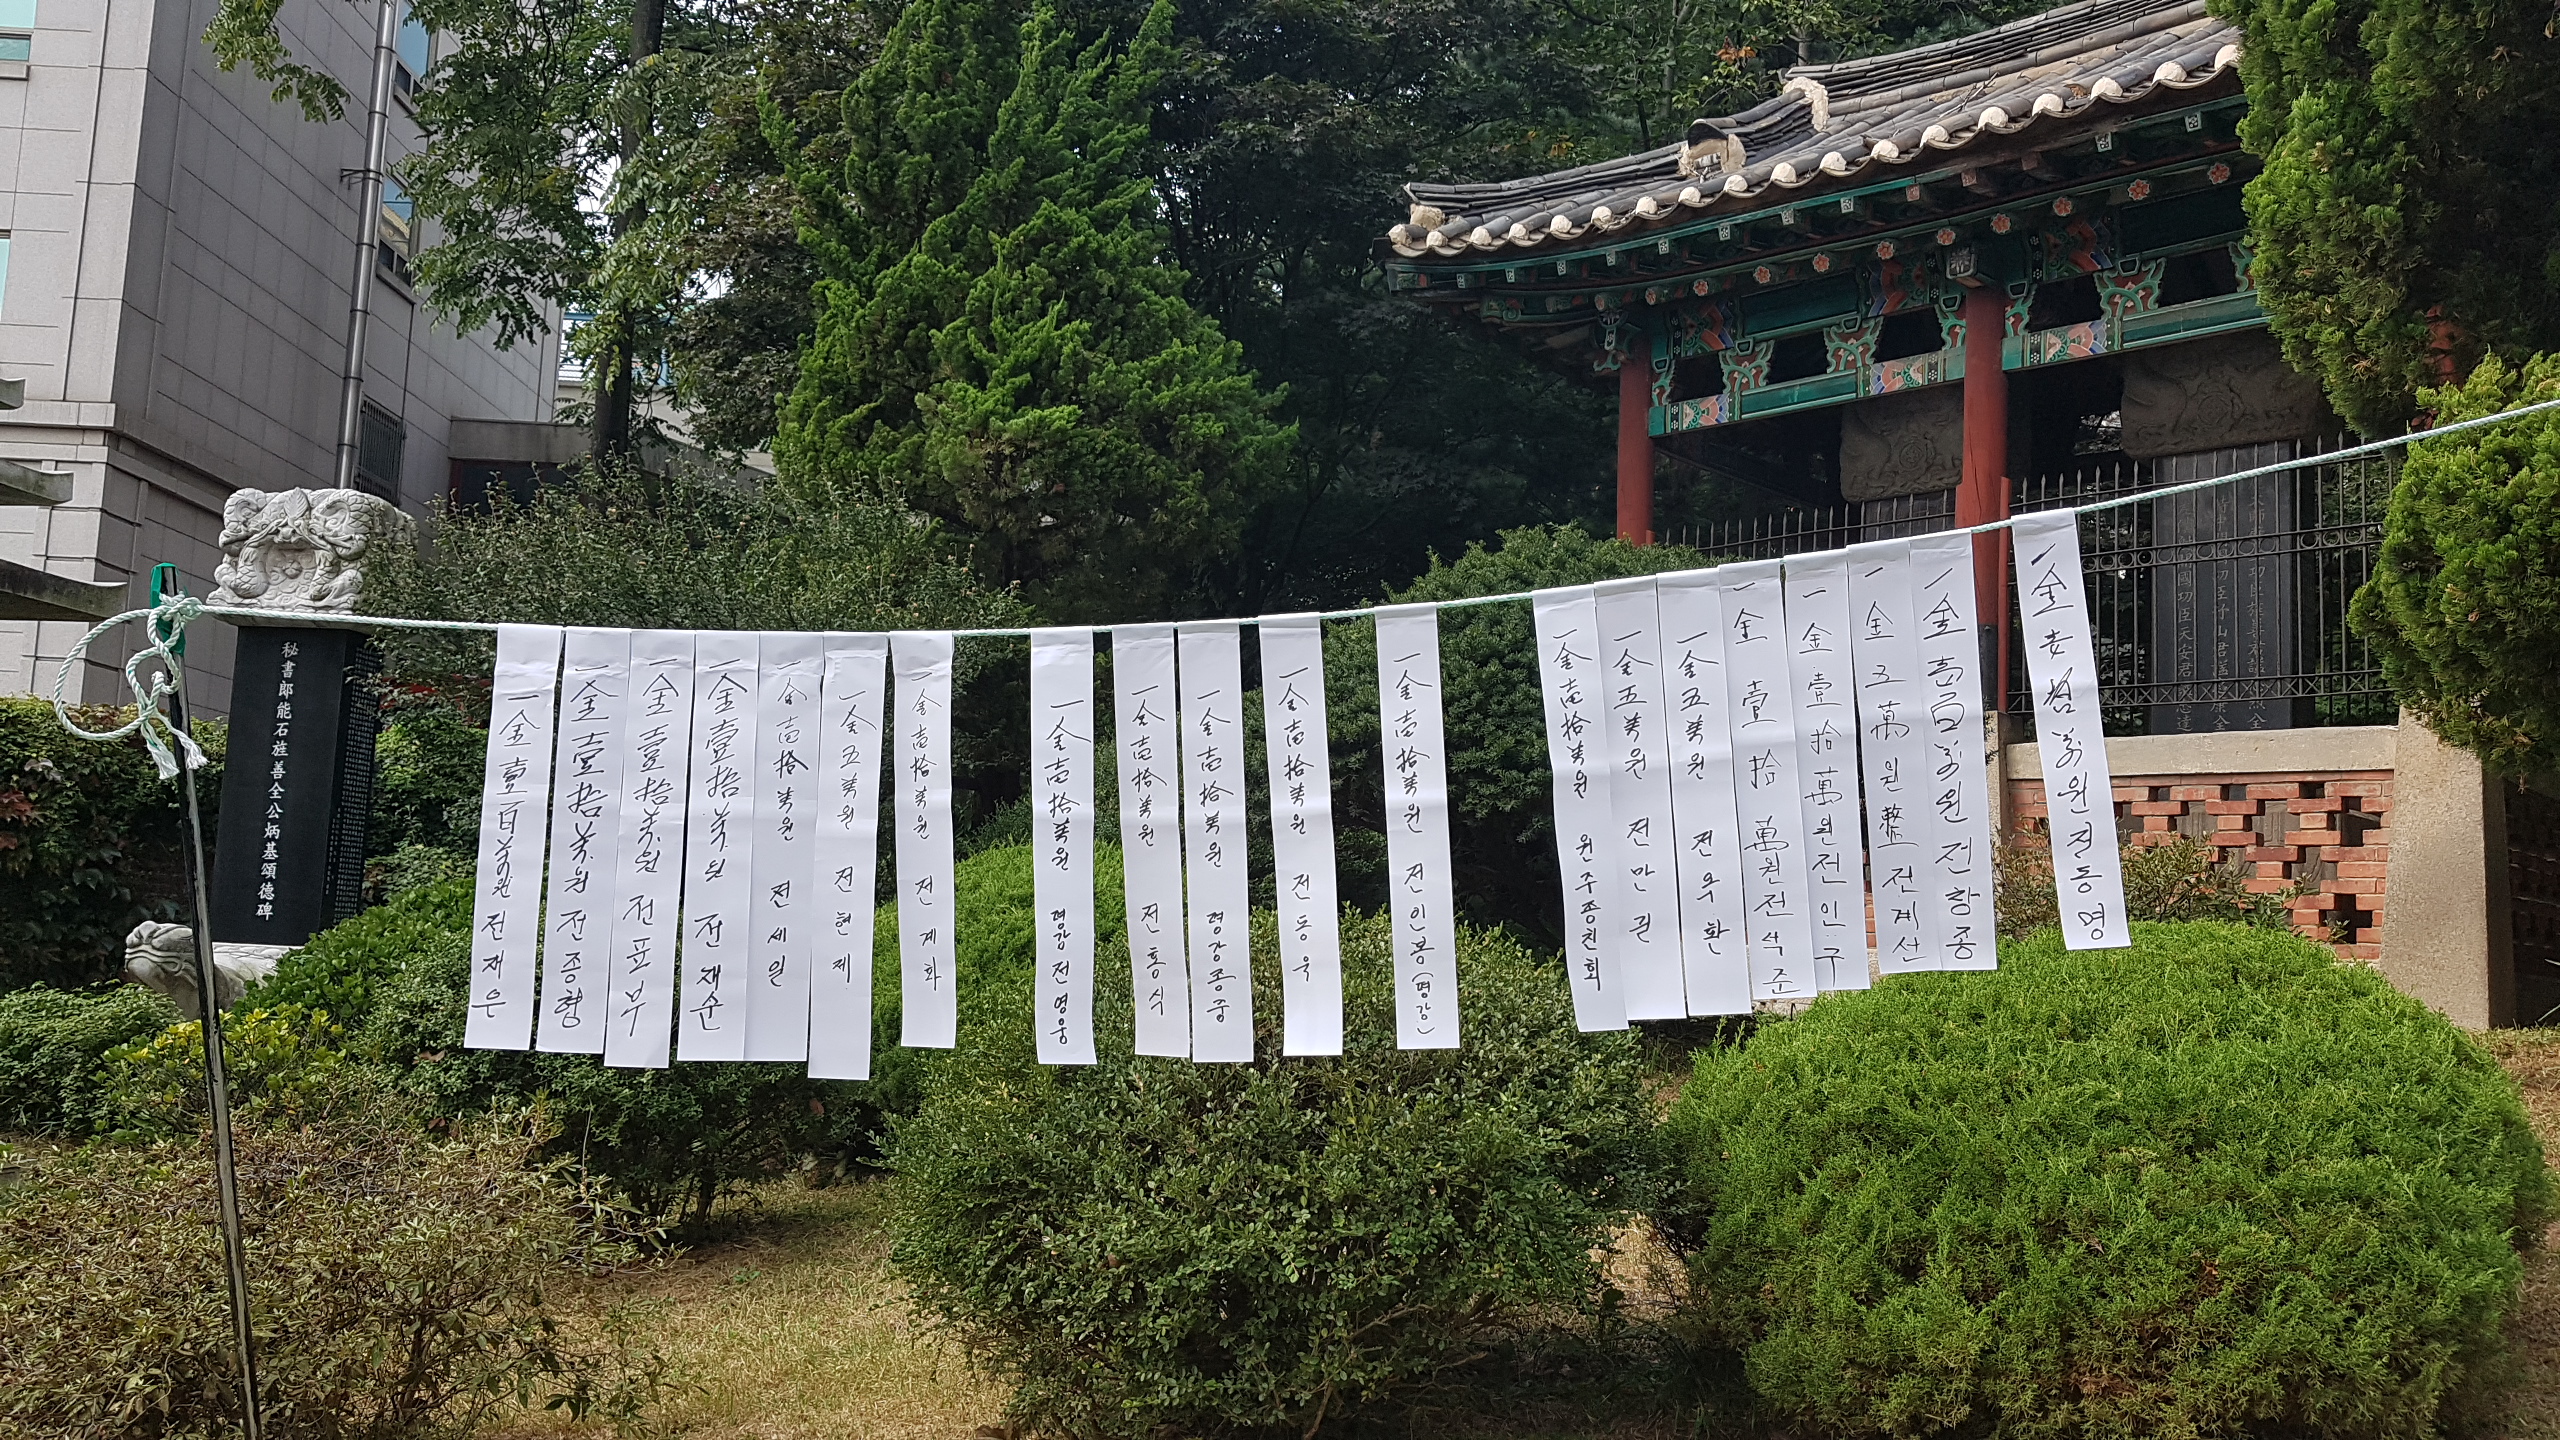 秘書郎能石旌善全公炳基頌德碑
一金壹百萬원 전재은
一金壹拾萬원 전종형
一金壹拾萬원 전포부
一金壹拾萬원 전재순
一金壹拾萬원 전세일
一金五萬원 전현제
一金壹拾萬원 전계화
一金壹拾萬원 평강전영웅
一金壹拾萬원 전흥식
一金壹拾萬원 평강종중
一金壹拾萬원 전동욱
一金壹拾萬원 전인봉(평강)
一金壹拾萬원 원주종친회
一金五萬원 전만길
一金五萬원 전우환
一金壹拾萬원전석준
一金壹拾萬원전인구
一金五萬원整전계선
一金壹百萬원전창종
一金 萬원전동명